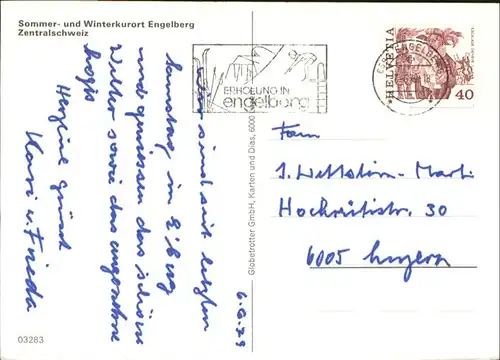 Sommer- und Winterkurort Engelberg
Zentralschweiz
Wir sind seit letzten
Samstag in E'berg
und geniessen das schöne
Wetter sowie das
Logis
Herzliche Grüsse
Hari u. Frieda
6.6.79
03283
Globetrotter GmbH, Karten und Dias, 6000
ERHOLUNG IN
engelberg
HELVETIA
40
Fam
J. Wettstein-Marti
Hochrütistr. 30
6005 Luzern